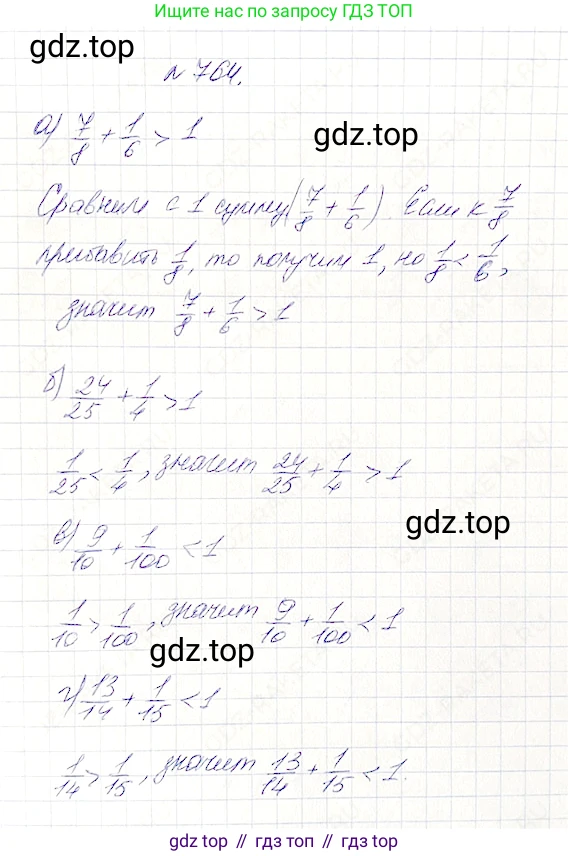 Ищите нас по запросу ГДЗ ТОП
gdz.top
№ 764.
а) 7/8 + 1/6 > 1
gdz.top
Сравним с 1 сумму (7/8 + 1/6). Если к 7/8
прибавить 1/8, то получим 1, но 1/8 < 1/6,
значит 7/8 + 1/6 > 1
б) 24/25 + 1/4 > 1
1/25 < 1/4, значит 24/25 + 1/4 > 1
gdz.top
в) 9/10 + 1/100 < 1
1/10 > 1/100, значит 9/10 + 1/100 < 1
gdz.top
г) 13/14 + 1/15 < 1
1/14 > 1/15, значит 13/14 + 1/15 < 1.
gdz top // гдз топ // гдз.топ